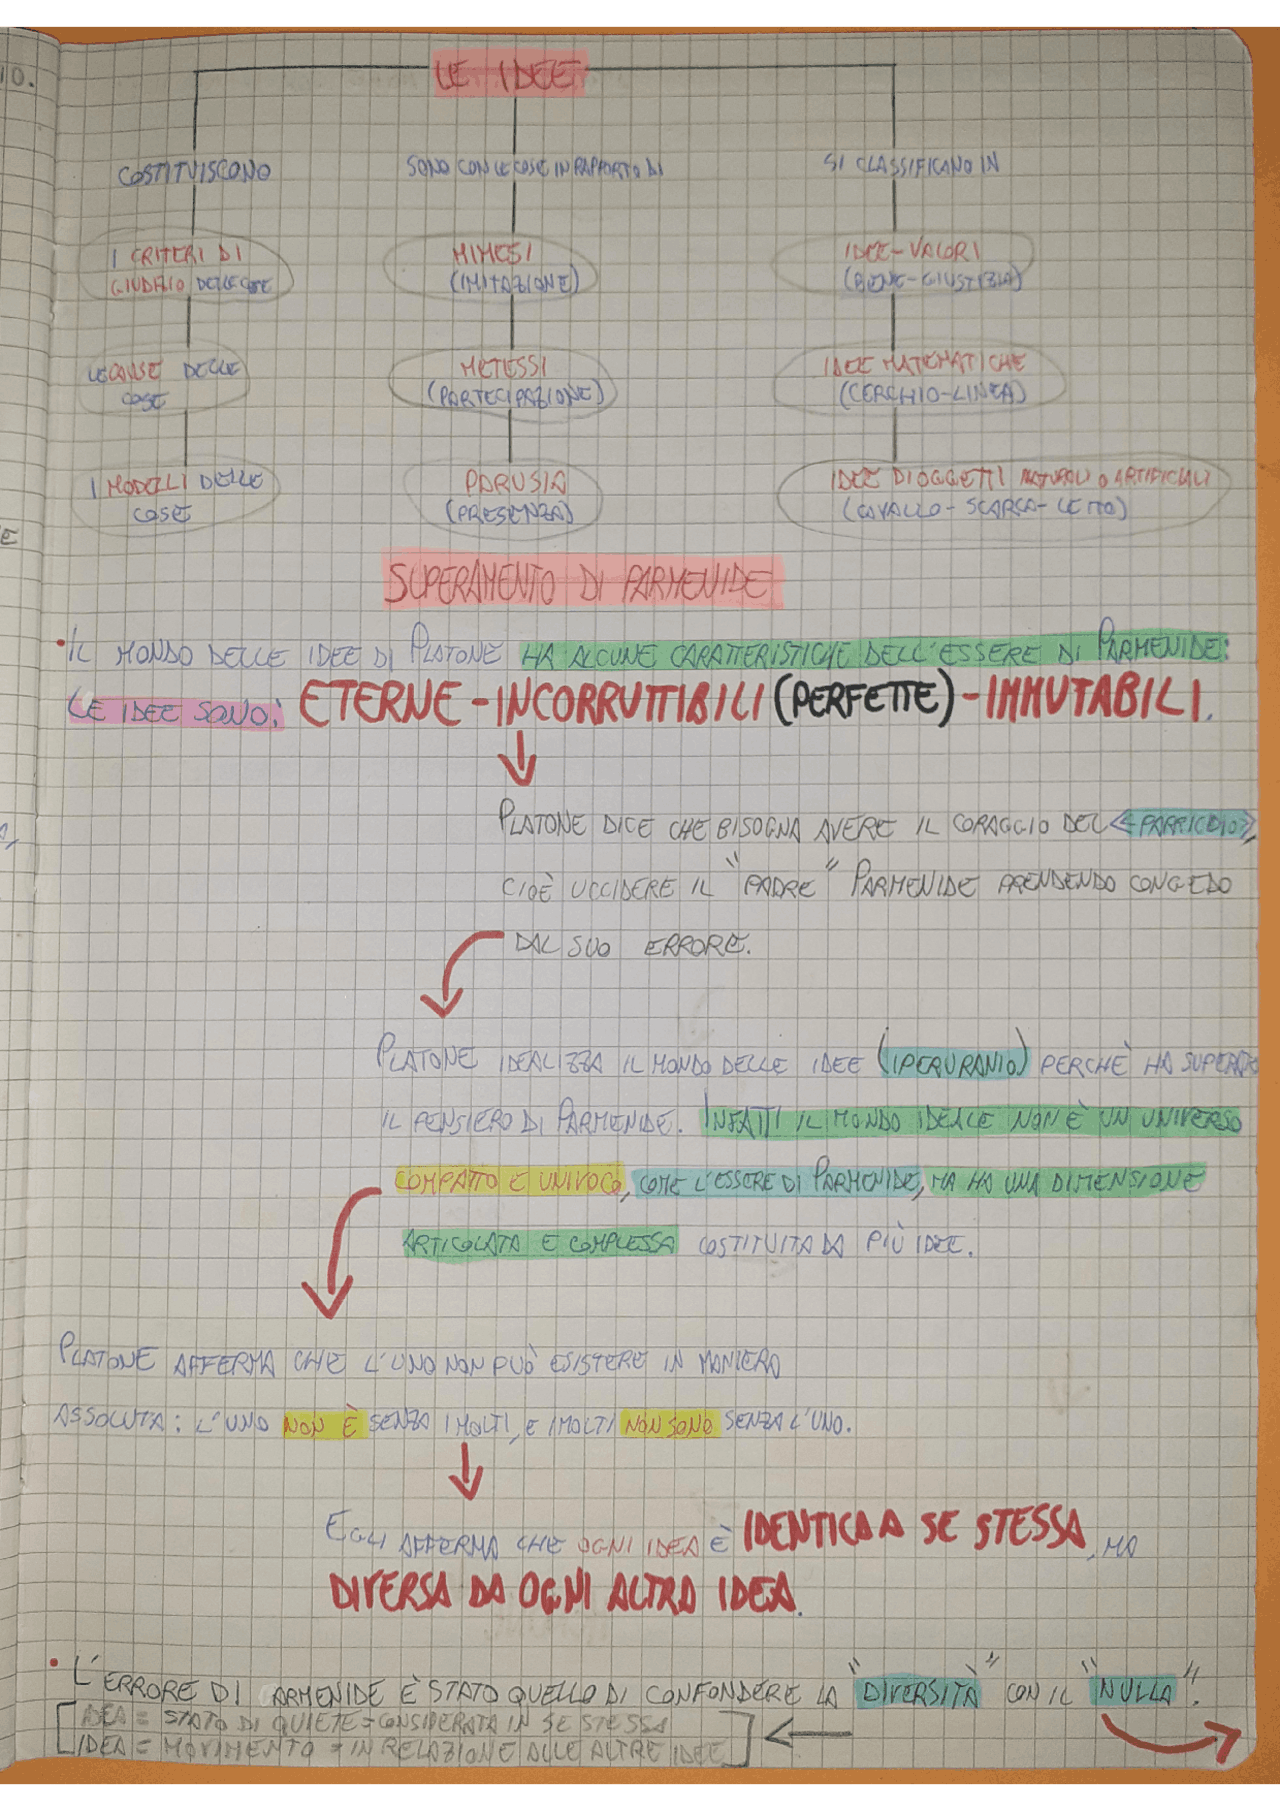 10.
LE IDEE
COSTITUISCONO
SONO CON LE COSE IN RAPPORTO DI
SI CLASSIFICANO IN
I CRITERI DI
GIUDIZIO DELLE COSE
MIMESI
(IMITAZIONE)
IDEE-VALORI
(BENE-GIUSTIZIA)
LE CAUSE DELLE
COSE
METESSI
(PARTECIPAZIONE)
IDEE MATEMATICHE
(CERCHIO-LINEA)
I MODELLI DELLE
COSE
PARUSIA
(PRESENZA)
IDEE DI OGGETTI NATURALI O ARTIFICIALI
(CAVALLO-SCARPA-LETTO)
SUPERAMENTO DI PARMENIDE
• IL MONDO DELLE IDEE DI PLATONE HA ALCUNE CARATTERISTICHE DELL'ESSERE DI PARMENIDE:
LE IDEE SONO: ETERNE-INCORRUTTIBILI (PERFETTE)-IMMUTABILI.
PLATONE DICE CHE BISOGNA AVERE IL CORAGGIO DEL «PARRICIDIO»,
CIOÈ UCCIDERE IL "PADRE" PARMENIDE PRENDENDO CONGEDO
DAL SUO ERRORE.
PLATONE IDEALIZZA IL MONDO DELLE IDEE (IPERURANIO) PERCHÈ HA SUPERATO
IL PENSIERO DI PARMENIDE. INFATTI IL MONDO IDEALE NON È UN UNIVERSO
COMPATTO E UNIVOCO, COME L'ESSERE DI PARMENIDE, MA HA UNA DIMENSIONE
ARTICOLATA E COMPLESSA COSTITUITA DA PIÙ IDEE.
PLATONE AFFERMA CHE L'UNO NON PUÒ ESISTERE IN MANIERA
ASSOLUTA: L'UNO NON È SENZA I MOLTI, E I MOLTI NON SONO SENZA L'UNO.
EGLI AFFERMA CHE OGNI IDEA È IDENTICA A SE STESSA, MA
DIVERSA DA OGNI ALTRA IDEA.
• L'ERRORE DI PARMENIDE È STATO QUELLO DI CONFONDERE LA "DIVERSITÀ" CON IL "NULLA".
IDEA = STATO DI QUIETE = CONSIDERATA IN SE STESSA
IDEA = MOVIMENTO = IN RELAZIONE ALLE ALTRE IDEE